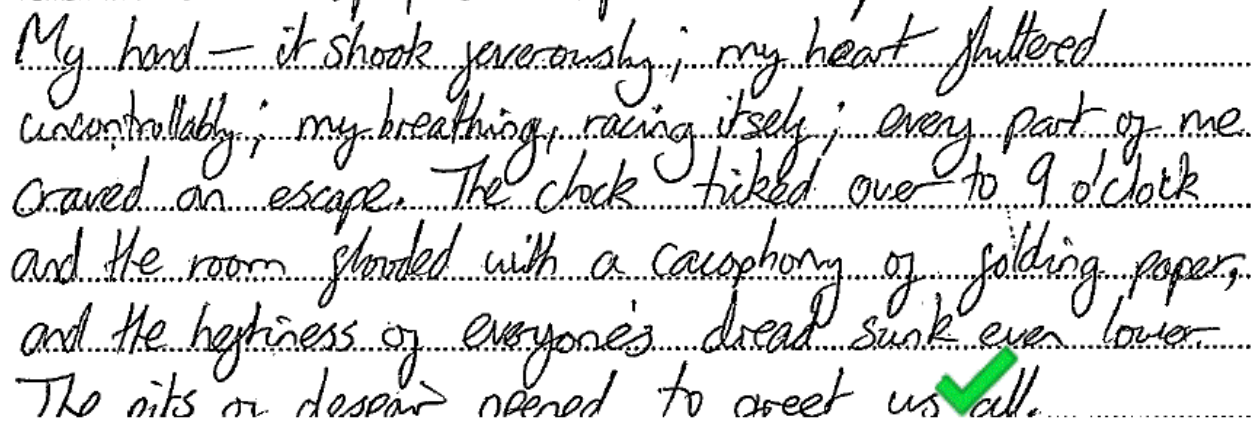 My hand – it shook feverously; my heart fluttered
uncontrollably; my breathing, racing itself; every part of me
craved an escape. The clock ticked over to 9 o'clock
and the room flooded with a cacophony of folding paper,
and the heftiness of everyone's dread sunk even lower.
The pits of despair opened to greet us all.